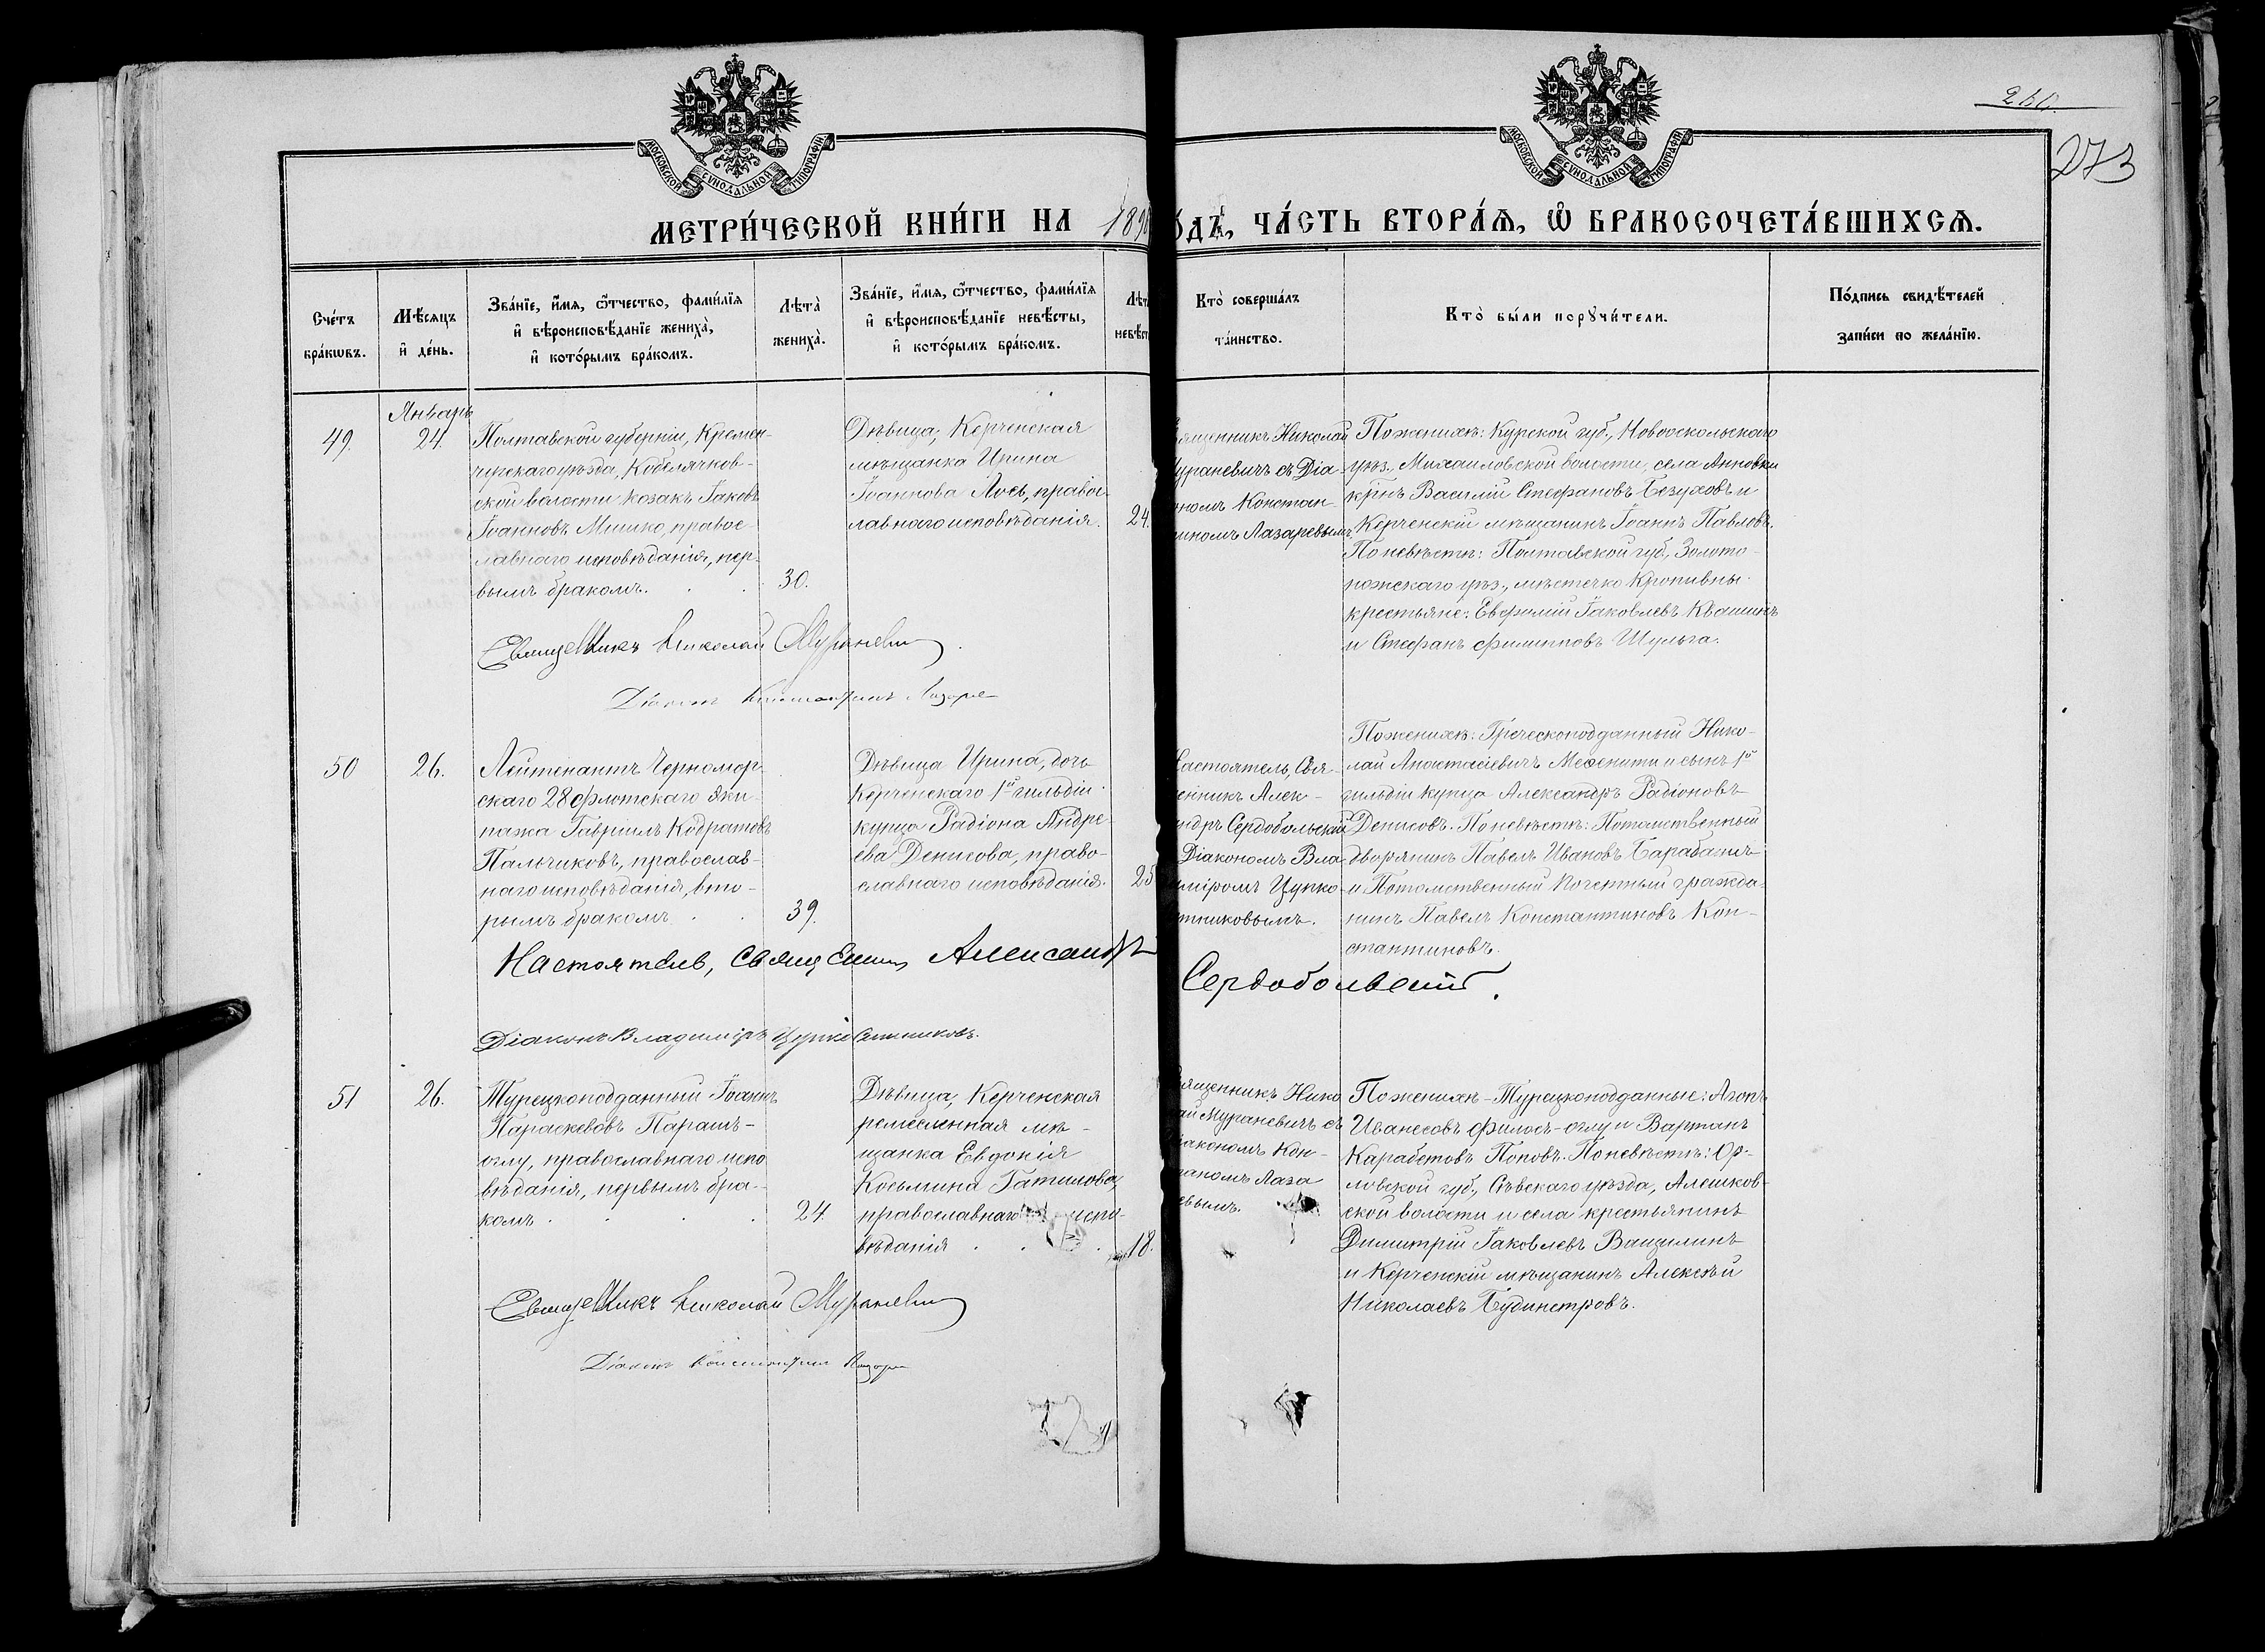 260.
273
МОСКОВСКОЙ СѴНОДАЛЬНОЙ ТИПОГРАФІИ
МОСКОВСКОЙ СѴНОДАЛЬНОЙ ТИПОГРАФІИ
МЕТРИ́ЧЕСКОЙ КНИ́ГИ НА 189
О́ДЪ, ЧА́СТЬ ВТОРА́Ѧ, Ѿ БРАКОСОЧЕТА́ВШИХСѦ.
Сче́тъ
бра́кѡвъ.
Мѣ́сяцъ
и҆ де́нь.
Зва́нїе, и҆́мѧ, ѻ҆́тчество, фами́лїѧ
и҆ вѣроисповѣ́данїе жениха̀,
и҆ кото́рымъ бра́комъ.
Лѣта̀
жениха̀.
Зва́нїе, и҆́мѧ, ѻ҆́тчество, фами́лїѧ
и҆ вѣроисповѣ́данїе невѣ́сты,
и҆ кото́рымъ бра́комъ.
Лѣт
невѣст
Кто̀ соверша́лъ
та́инство.
Кто̀ бы́ли порꙋчи́тели.
По́дпись свидѣ́телей
за́писи по жела́нїю.
49.
Январь
24.
Полтавской губерніи, Кремен-
чугскаго уѣзда, Кобелячков-
ской волости козакъ Іаковъ
Іоанновъ Мишко, правос-
лавнаго исповѣданія, пер-
вымъ бракомъ.
30.
Дѣвица, Керченская
мѣщанка Ирина
Іоаннова Лось, правос-
лавнаго исповѣданія.
24.
ященникъ Николай
ураневичъ съ Діа-
ономъ Констан-
иномъ Лазаревымъ.
По женихѣ: Курской губ., Новооскольскаго
уѣз., Михайловской волости, села Анновки
кр̃нъ Василій Стефановъ Безуховъ и
Керченскій мѣщанинъ Іоаннъ Павловъ.
По невѣстѣ: Полтавской губ., Золото-
ножскаго уѣз., мѣстечко Кропивны
крестьяне: Евфимій Іаковлевъ Квашинъ
и Стефанъ Филипповъ Шульга.
Священникъ Николай Мураневич
Діаконъ Константинъ Лазаре
50
26.
Лейтенантъ Черномор-
скаго 28 флотскаго эки-
пажа Гавріилъ Кодратовъ
Пальчиковъ, православ-
наго исповѣданія, вто-
рымъ бракомъ
39.
Дѣвица Ирина, дочь
Керченскаго 1й гильдіи
купца Радіона Андре-
ева Денисова, право-
славнаго исповѣданія.
25
Настоятель, Свя-
енникъ Алек-
ндръ Сердобольскій
Діакономъ Вла-
иміромъ Цупко-
тниковымъ.
По женихѣ: Греческоподданный Нико-
лай Анастасіевичъ Месенити и сынъ 1й
гильдіи купца Александръ Радіоновъ
Денисовъ. По невѣстѣ: Потомственный
дворянинъ Павелъ Ивановъ Барабашъ
и Потомственный Почетный гражда-
нинъ Павелъ Константиновъ Кон-
стантиновъ.
Настоятель, Священникъ Александръ
Сердобольскій.
Діаконъ Владиміръ Цупко Ситниковъ.
51
26.
Турецкоподданный Іоаннъ
Параскевовъ Парашъ-
оглу, православнаго испо-
вѣданія, первымъ бра-
комъ
24.
Дѣвица, Керченская
ремесленная мѣ-
щанка Евдокія
Косьмина Гатилова,
православнаго испо-
вѣданія
18.
ященникъ Нико
ай Мураневичъ съ
акономъ Кон-
Лаза
евымъ.
По женихѣ - Турецкоподданные: Агопъ
Иванесовъ Филосъ-оглу и Вартанъ
Карабетовъ Поповъ. По невѣстѣ: Ор-
ловской губ., Сѣвскаго уѣзда, Алешков-
ской волости и села крестьянинъ
Димитрій Іаковлевъ Ващилинъ
и Керченскій мѣщанинъ Алексѣй
Николаевъ Будинстровъ.
Священникъ Николай Мураневич
Діаконъ Константинъ Лазаре